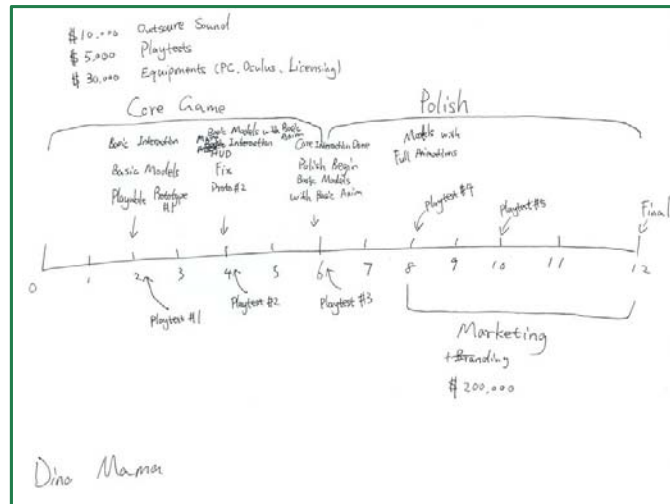 $10,000 Outsource Sound
$5,000 Playtests
$30,000 Equipments (PC, Oculus, Licensing)
Core Game
Polish
Basic Interaction
Basic Models
Playable Prototype
#1
Basic Models with Basic
Anim
Interaction
HUD
Fix
Proto #2
Core Interaction Done
Polish Begin
Basic Models
with Basic Anim
Models with
Full Animations
Playtest #4
Playtest #5
Final
0 1 2 3 4 5 6 7 8 9 10 11 12
Playtest #1
Playtest #2
Playtest #3
Marketing
+ Branding
$200,000
Dino Mama